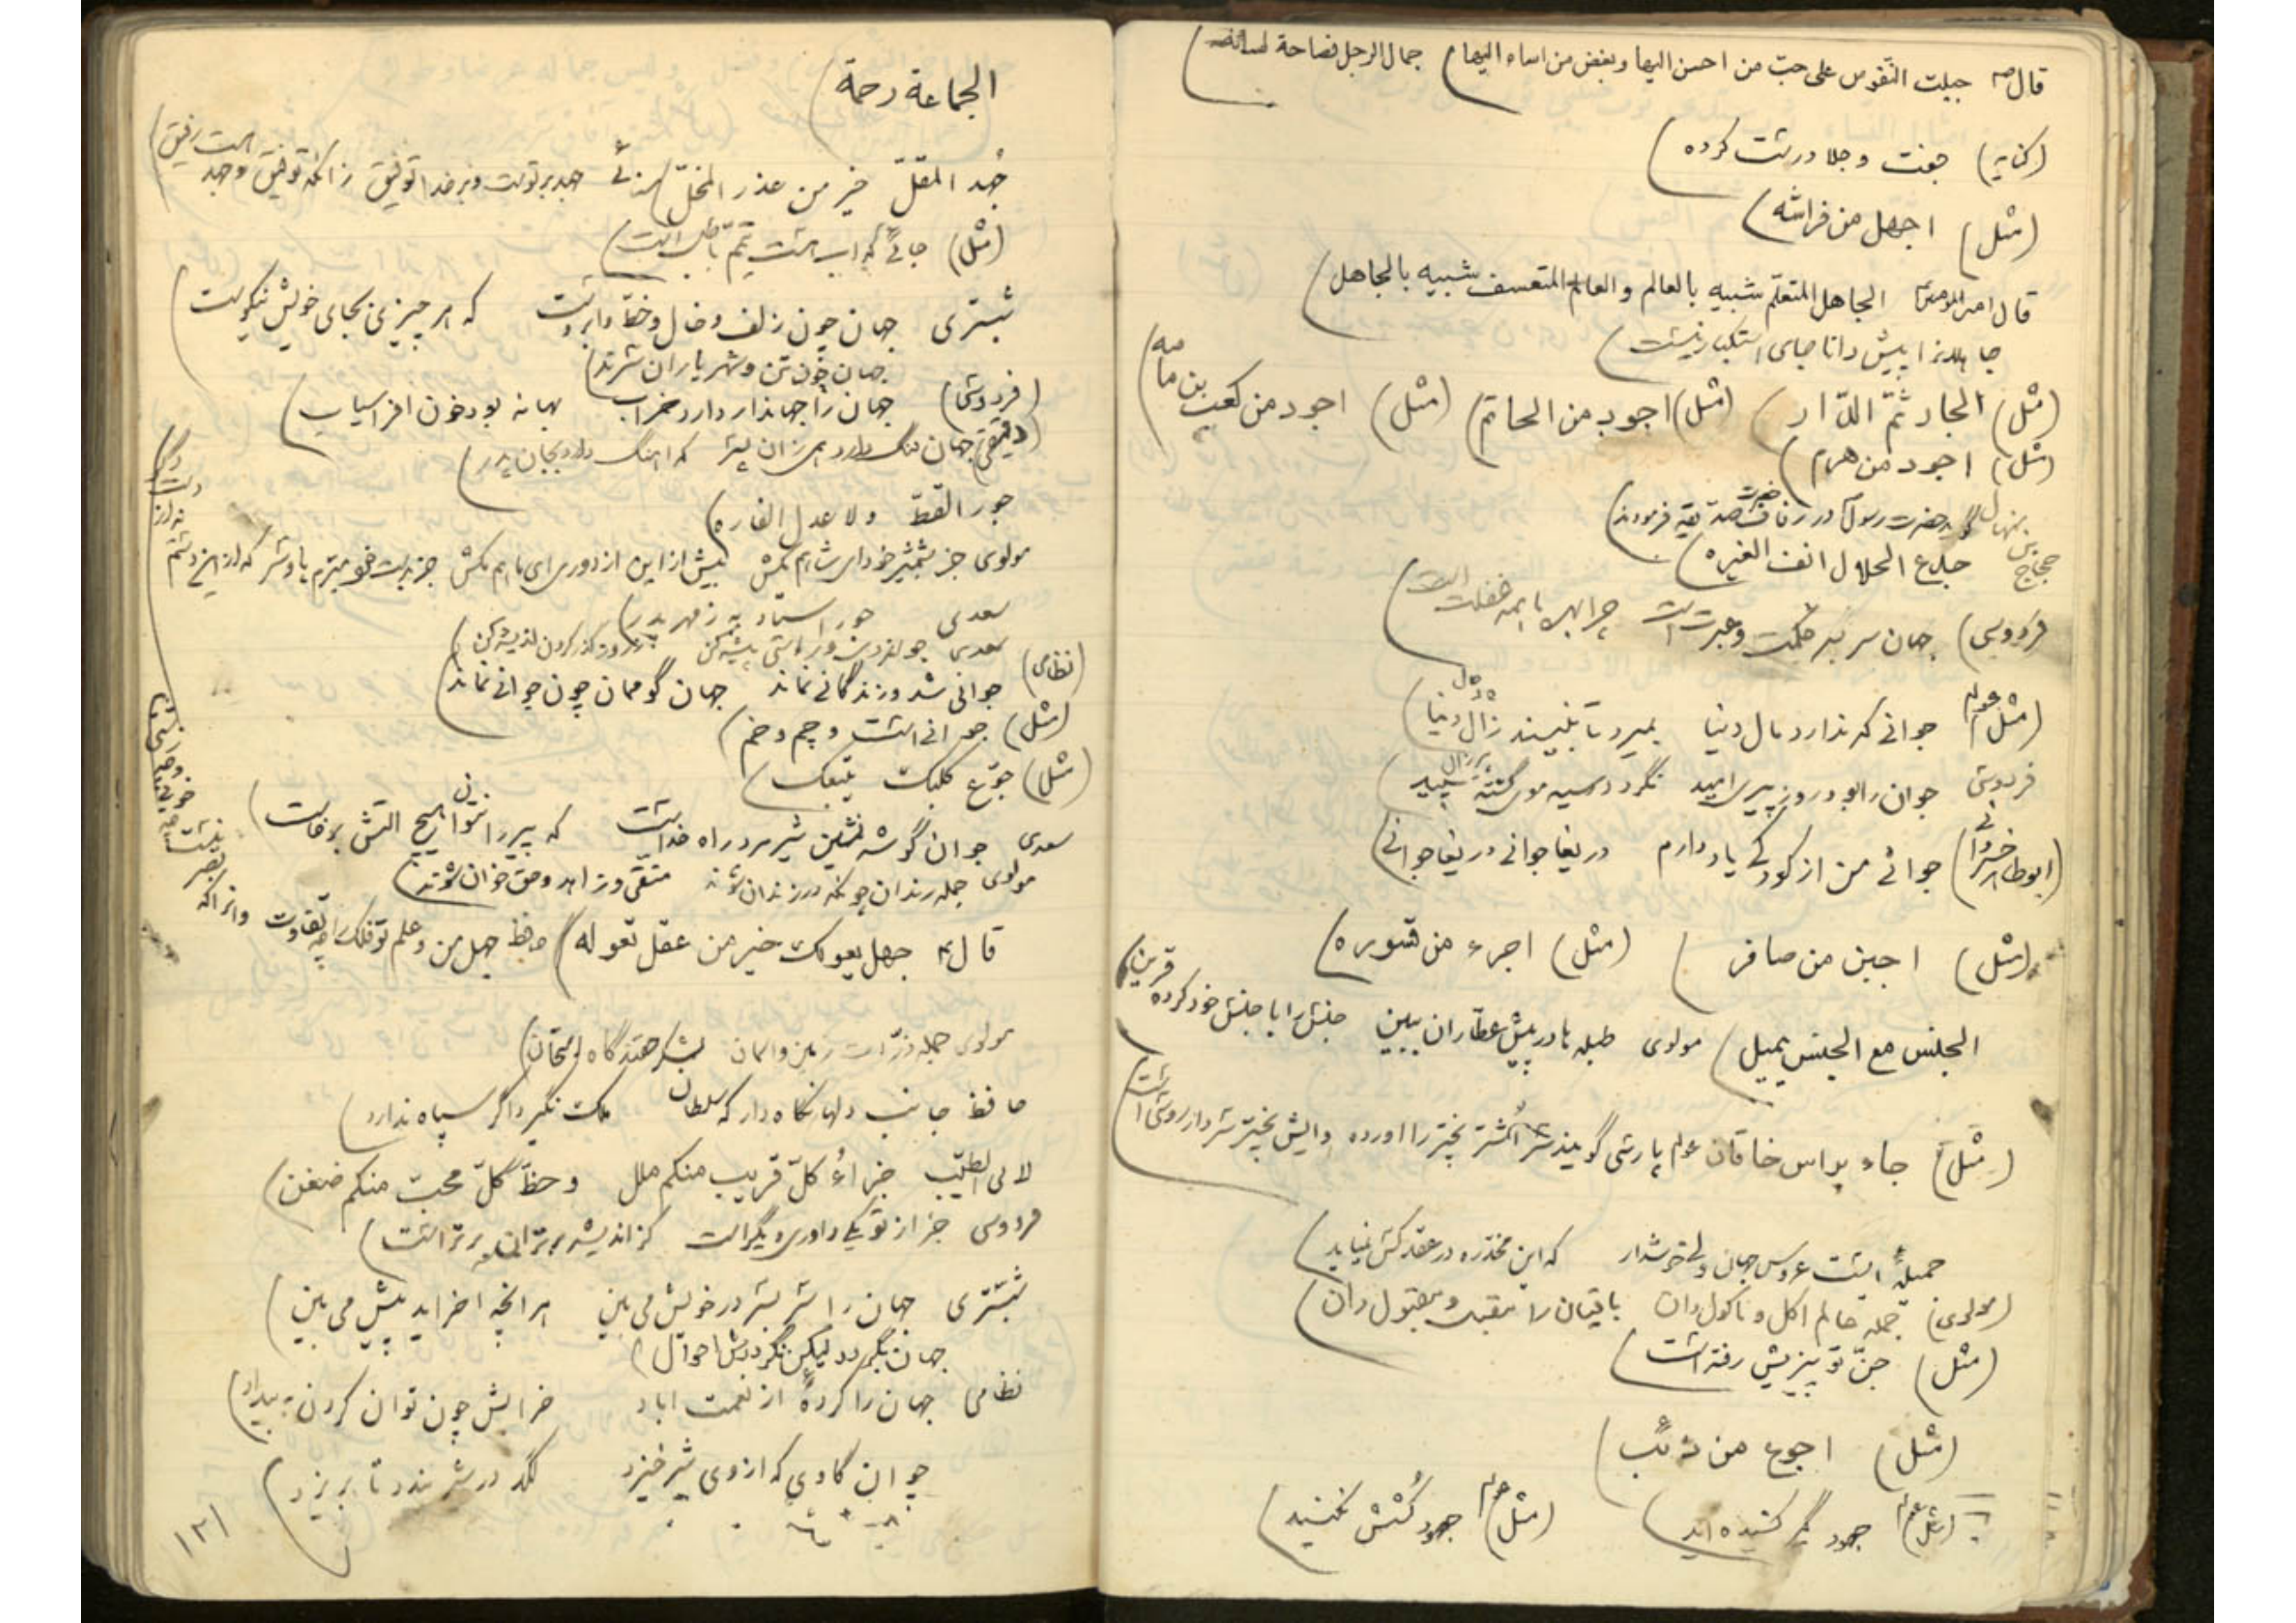 قال ص جبلت النفوس علی حبّ من احسن الیها وبغض من اساء الیها) جمال الرجل فصاحة لسانه)
(کنایه) جفت و جلا درست کرده)
(مثل) اجهل من فراشه)
قال امیرالمومنین الجاهل المتعلّم شبیه بالعالم والعالم المتعسف شبیه بالجاهل)
جاهلانرا پیش دانا جای استکبار نیست)
(مثل) الجار ثمّ الدّار) (مثل) اجود من الحاتم) (مثل) اجود من کعب بن مامه)
(مثل) اجود من هرم)
گوید حضرت رسول در زفاف حضرت صدیقه فرمودند)
جدع الحلال انف الغیره)
فردوسی) جهان سر بسر حکمت و عبرت است چرا بهر ما همه غفلت است)
(مثل عوام) جوانی که ندارد مال دنیا بمیرد تا نبیند زال دنیا)
فردوسی جوان را بود روز پیری امید نگردد سیه موی گشته سپید)
(ابوطاهر خسروانی) جوانی من از کودکی یاد دارم دریغا جوانی دریغا جوانی)
(مثل) اجبن من صافر) (مثل) اجرء من قسوره)
الجنس مع الجنس یمیل) مولوی طبله ها در پیش عطّاران ببین جنس را با جنس خود کرده قرین)
(مثل) جاء براس خاقان عوام پارسی گویند سر اشپختر را اورده وایش پختر سردار روسی است
جمیلهٔ ایست عروس جهان ولی خوشدار که این مخدّره در عقد کس نمیاید)
(مولوی) جمله عالم اکل و ماکول دان باقیان را مقبل و مقبول دان)
(مثل) جنّ تو پیزیش رفته است)
(مثل) اجوع من ذئب)
(مثل عوام) جهود گیر کشیده اید) (مثل عوام) جهود کُشش نکنید)
الجماعة رحمة)
جُهد المقلّ خیر من عذر المخلّ) سنائی جهد بر توست و بر خدا توفیق زانکه توفیق و جهد هست رفیق)
(مثل) جائی که اب هست تیمّم باطل است)
شبستری جهان چون زلف و خال و خطّ و ابروست که هر چیزی بجای خویش نیکوست)
جهان چون تن و شهریاران سرند)
(فردوسی) جهان را جهاندار دارد خراب بهانه بود خون افراسیاب)
(دقیقی) جهان تنگ دارد همی زان پسر که اهنگ دارد بجان پدر)
جور القطّ ولا عدل الفاره)
مولوی جز بشمشیر خود ای شاهم مکش بیش از این از دوری ای ماهم مکش
سعدی جور استاد به ز مهر پدر)
سعدی جوانمردی و راستی پیشه کن
(نظامی) جوانی شد و زندگانی نماند جهان گو ممان چون جوانی نماند)
(مثل) جوانی است و چم و خم)
(مثل) جوّع کلبک یتبعک)
سعدی جوان گوشه نشین شیرمرد راه خداست که پیر را نتوان هیچ التش برخاست)
مولوی جمله رندان چونکه در زندان شوند متّقی و زاهد و حق خوان شوند)
قال ع جهل یعولک خیر من عقل تعوله) حافظ جهل من و علم تو فلک را چه تفاوت وانجا که بصر نیست چه خوبی و چه زشتی
مولوی جمله ذرّات زمین و اسمان لشکر حقند گاه امتحان)
حافظ جانب دلها نگاه دار که سلطان ملک نگیرد اگر سپاه ندارد)
لابی الطیّب جزاءُ کلّ قریب منکم ملل و حظّ کلّ محبّ منکم ضغن)
فردوسی جز از تو یکی داور دیگر است کز اندیشه برتران برتر است)
شبستری جهان را سر بسر در خویش می بین هر انچه اخر اید پیش می بین)
جهان بگردد لیکن نگرددش احوال)
نظامی جهان را کردهٔ از نعمت اباد خرابش چون توان کردن به بیداد)
چو ان گاوی که از وی شیر خیزد لگد در شیر زند تا بریزد)
۱۲۱